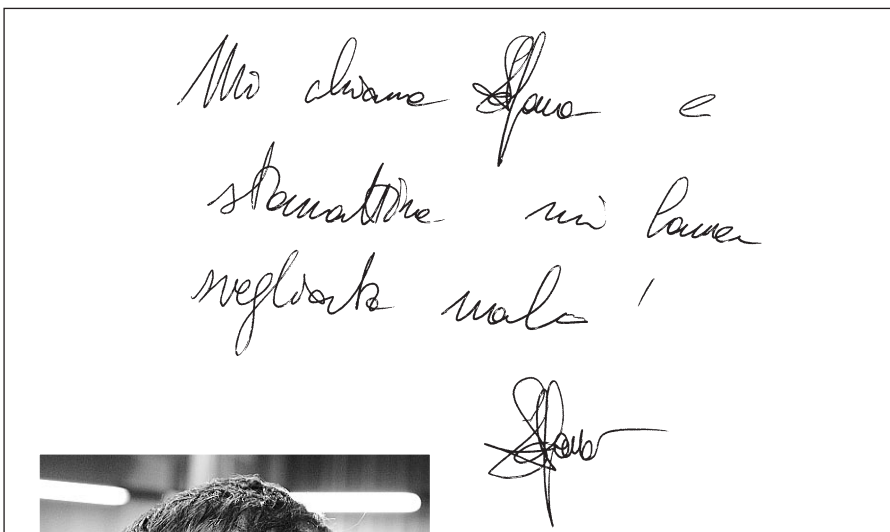 Mi chiamo Stefano e
stamattina mi hanno
svegliato male !
Stefano